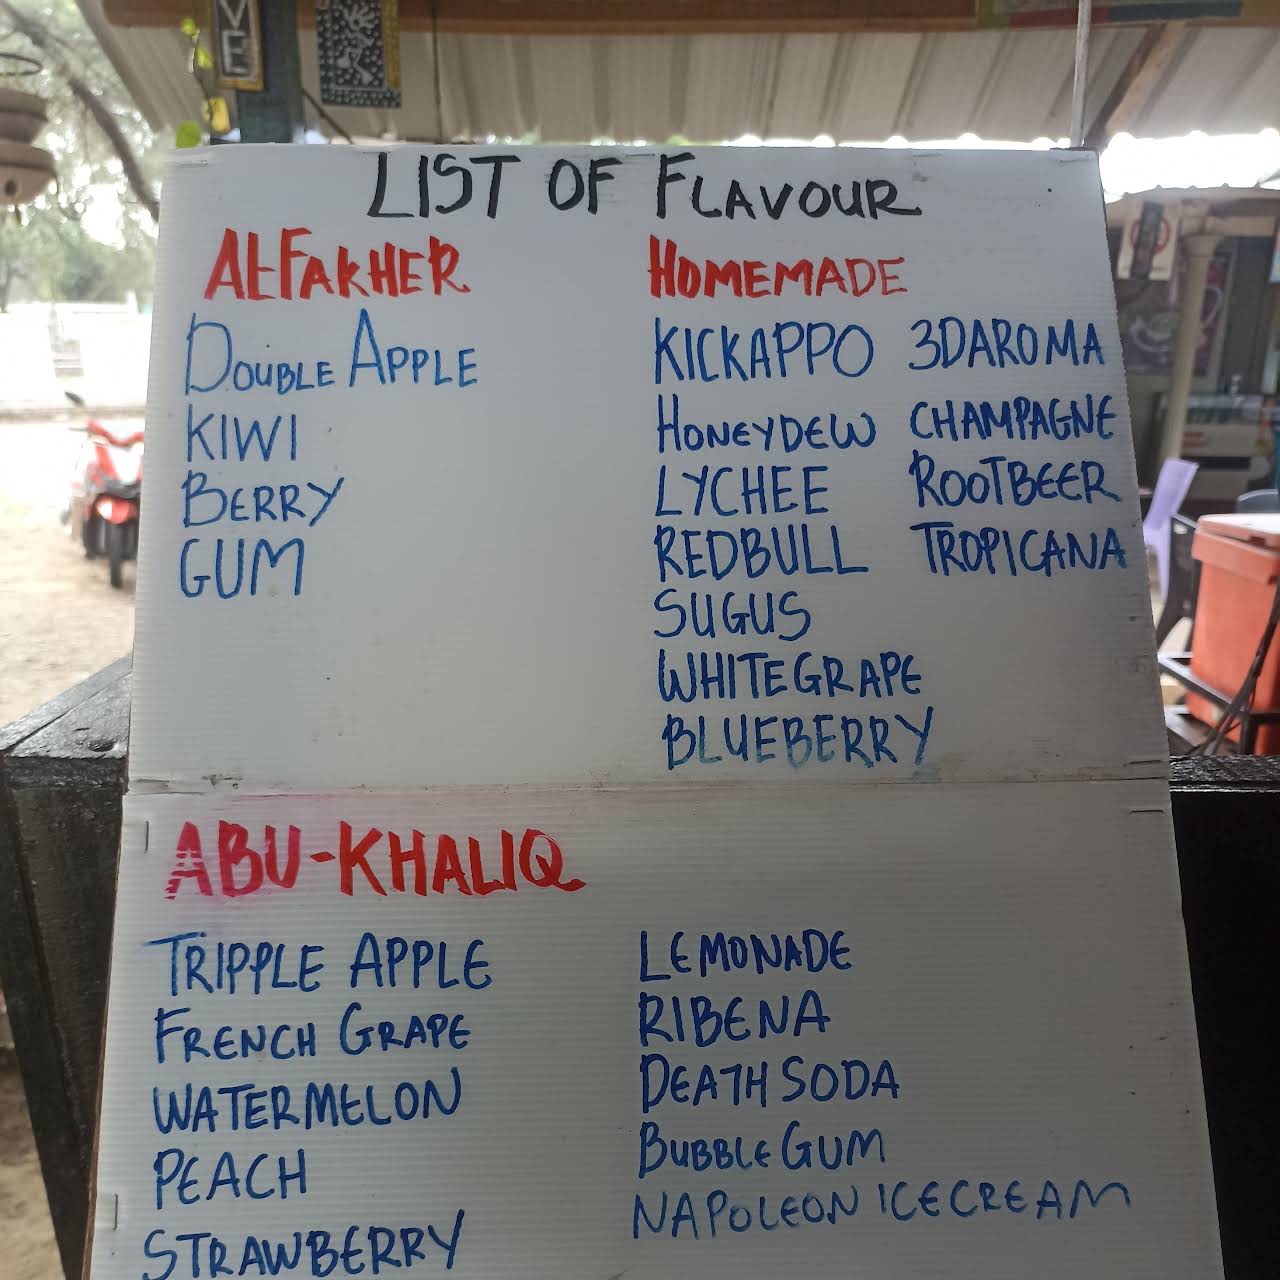 VE
LIST OF FLAVOUR
AL-FAKHER
DOUBLE APPLE
KIWI
BERRY
GUM
HOMEMADE
KICKAPPO
HONEYDEW
LYCHEE
REDBULL
SUGUS
WHITEGRAPE
BLUEBERRY
3DAROMA
CHAMPAGNE
ROOTBEER
TROPICANA
ABU-KHALIQ
TRIPPLE APPLE
FRENCH GRAPE
WATERMELON
PEACH
STRAWBERRY
LEMONADE
RIBENA
DEATH SODA
BUBBLE GUM
NAPOLEON ICECREAM